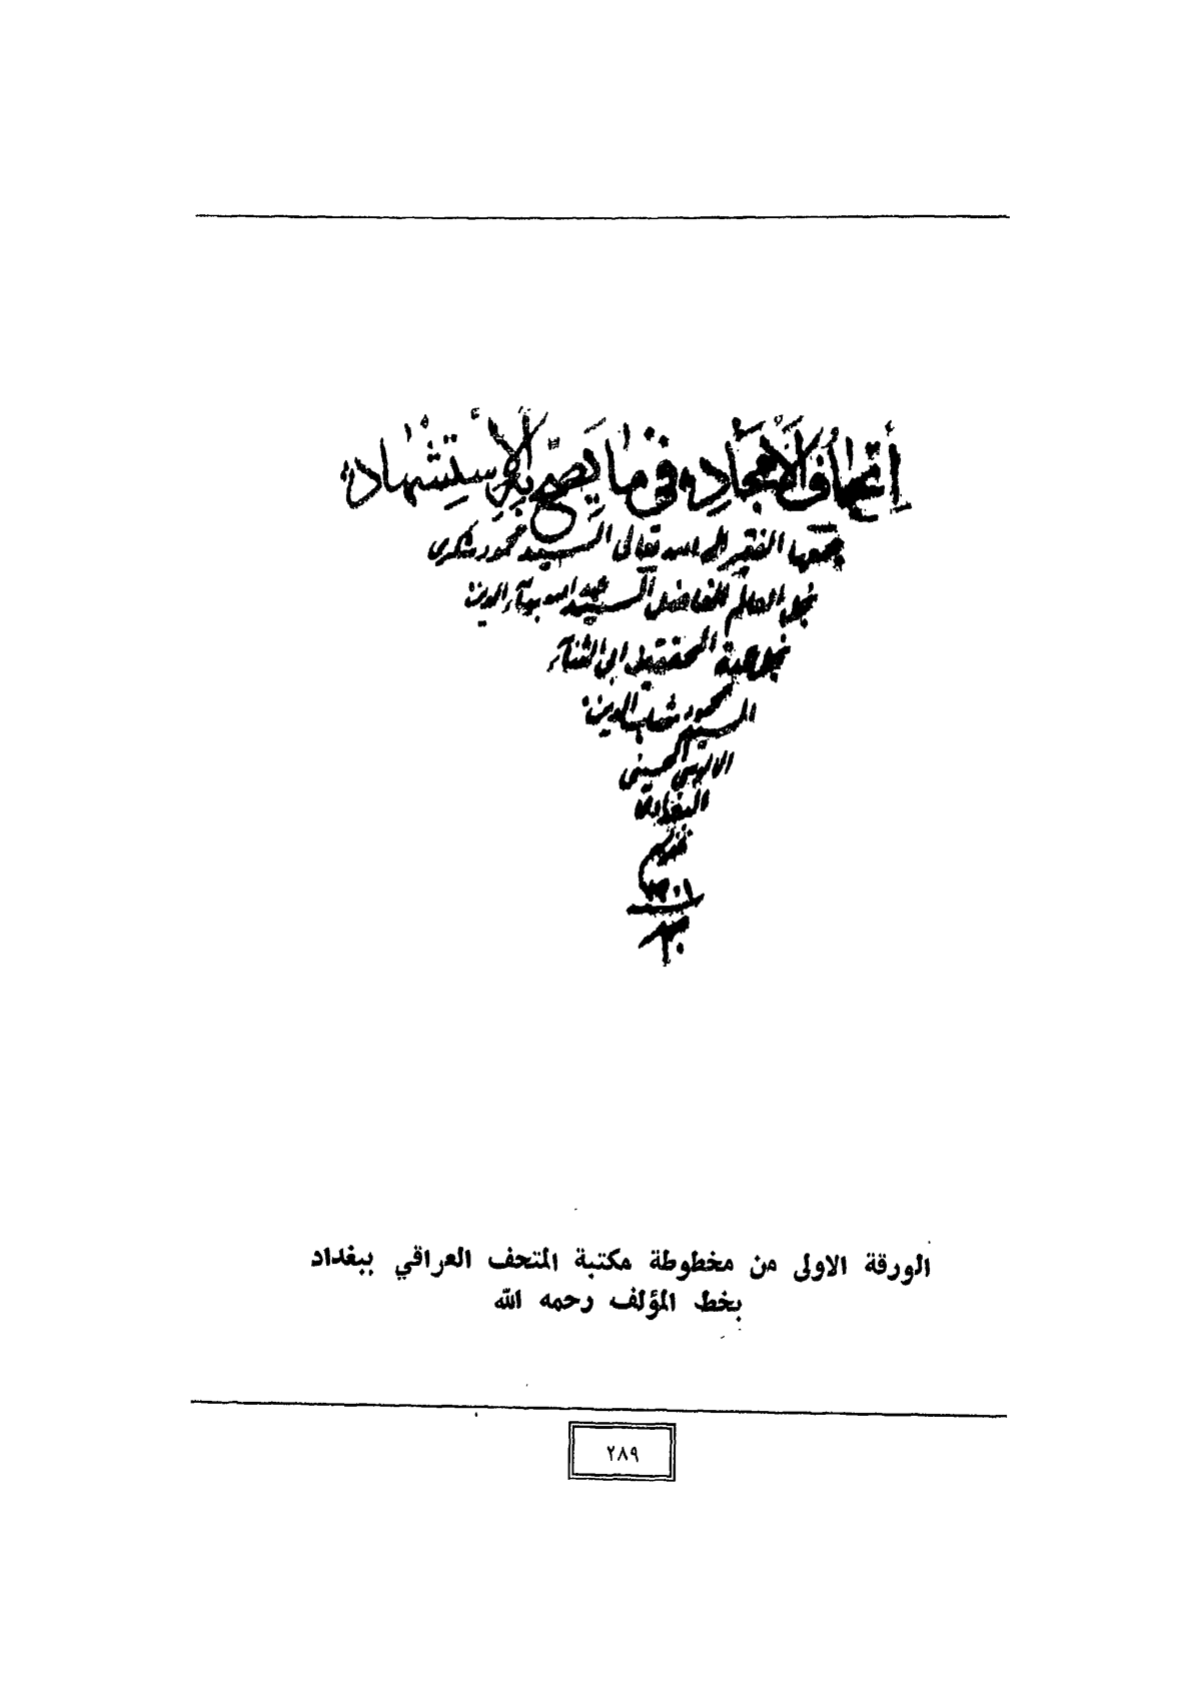 إتحاف الأمجاد في ما يصح به الاستشهاد
جمعها الفقير اليه الله تعالى السيد محمود شكري
نجل العالم الفاضل السيد عبد الله بهاء الدين
نجل المحققين ابى الثناء
السيد محمود شهاب الدين
الالوسي الحسيني
البغدادي
١٣٠١
الورقة الاولى من مخطوطة مكتبة المتحف العراقي ببغداد
بخط المؤلف رحمه الله
٢٨٩